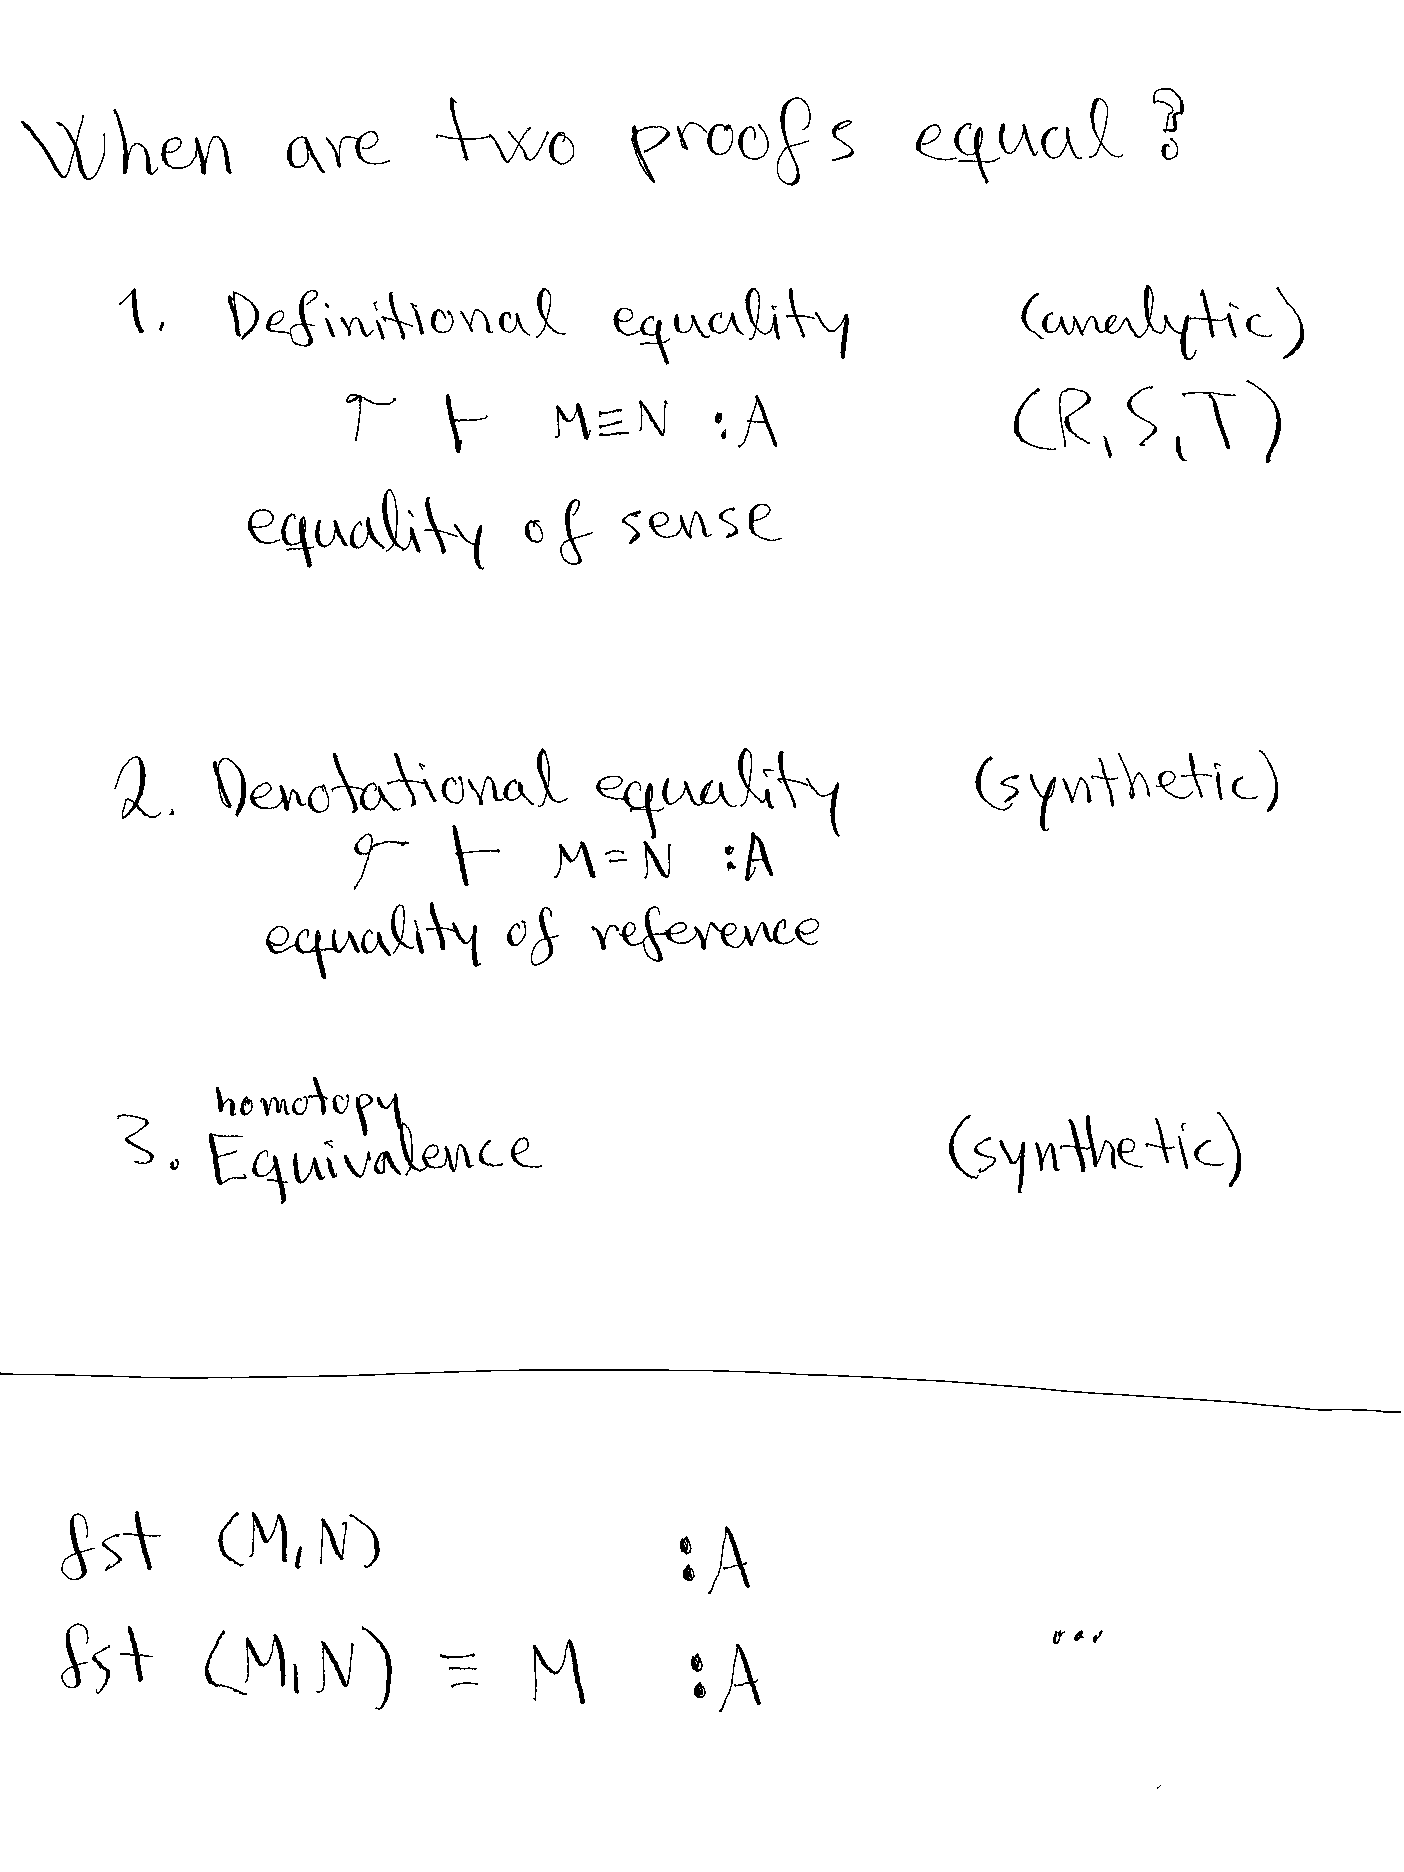 When are two proofs equal?
1. Definitional equality (analytic)
Γ ⊢ M≡N :A (R,S,T)
equality of sense
2. Denotational equality (synthetic)
Γ ⊢ M=N :A
equality of reference
homotopy
3. Equivalence (synthetic)
fst (M,N) :A
fst (M,N) ≡ M :A ...